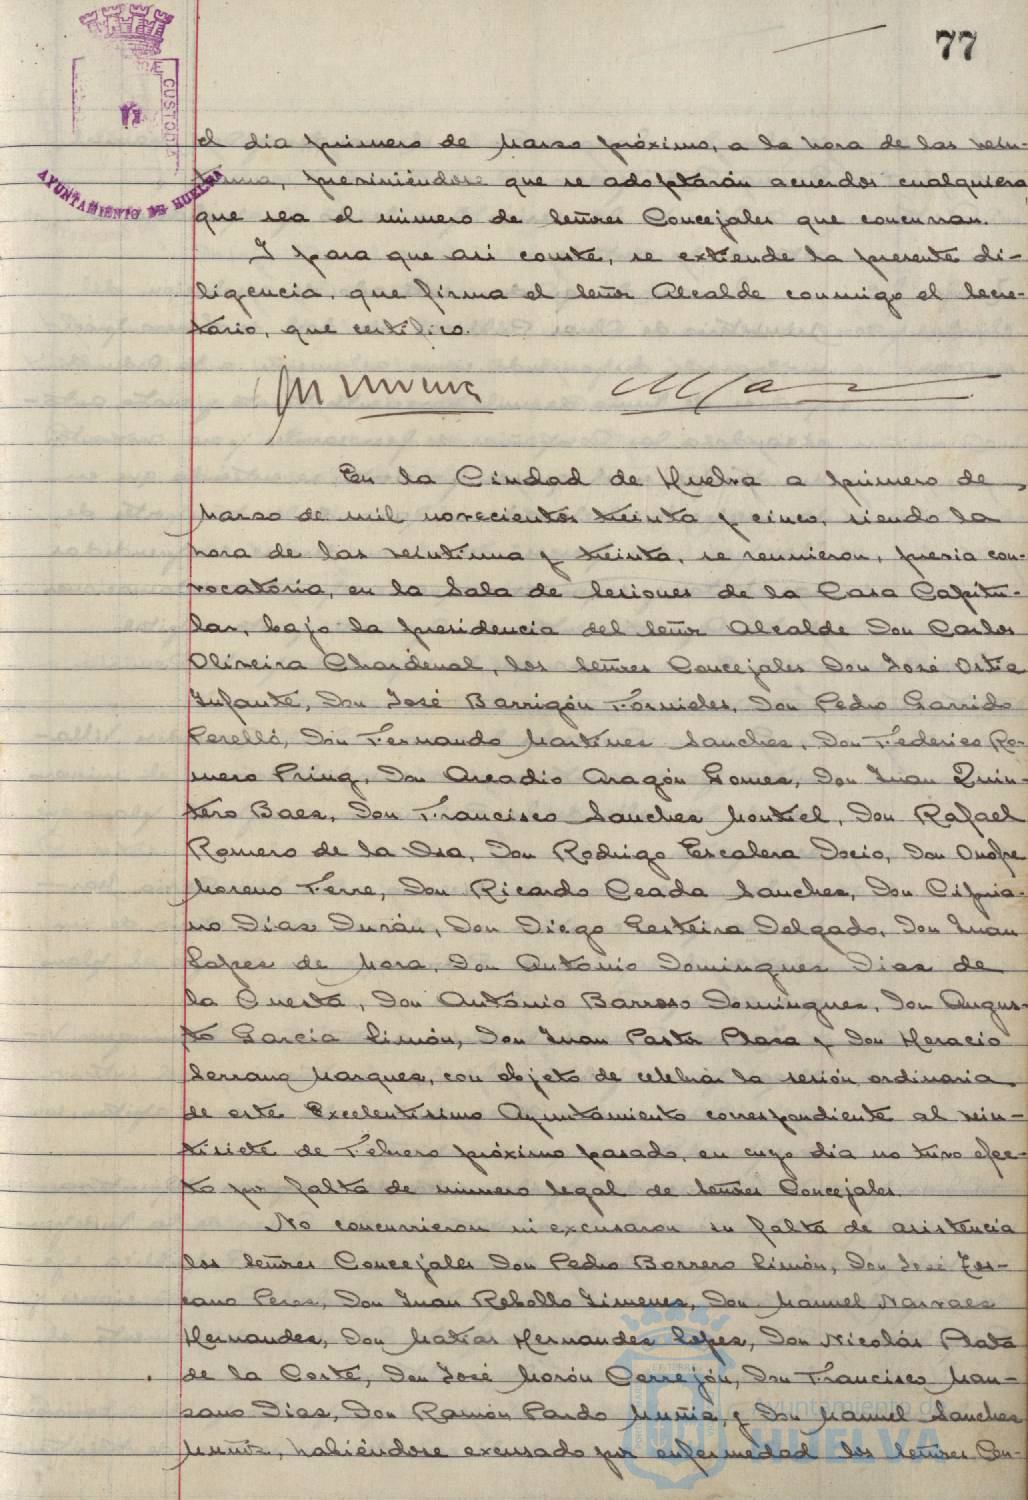 77
CUSTODI
AYUNTAMIENTO DE HUELVA
el dia primero de Marzo próximo, a la hora de las vein-
tiuna, previniéndose que se adoptarán acuerdos cualquiera
que sea el número de señores Concejales que concurran.
Y para que asi conste, se extiende la presente di-
ligencia, que firma el señor Alcalde conmigo el Secre-
tario, que certifico.
En la Ciudad de Huelva a primero de
Marzo de mil novecientos treinta y cinco, siendo la
hora de las veintiuna y treinta, se reunieron, previa con-
vocatoria, en la Sala de Sesiones de la Casa Capitu-
lar, bajo la presidencia del señor Alcalde Don Carlos
Oliveira Chardenal, los señores Concejales Don José Ostia
Infante, Don José Barrigón Fornieles, Don Pedro Garrido
Perelló, Don Fernando Martinez Sanchez, Don Federico Ro-
mero Pring, Don Arcadio Aragón Gomez, Don Juan Quin-
tero Baez, Don Francisco Sanchez Montiel, Don Rafael
Romero de la Osa, Don Rodrigo Escalera Docio, Don Onofre
Moreno Ferre, Don Ricardo Ceada Sanchez, Don Cipria-
no Diaz Durán, Don Diego Lesteira Delgado, Don Juan
Lopez de Mora, Don António Dominguez Diaz de
la Cuesta, Don António Barroso Dominguez, Don Augus-
to Garcia Limón, Don Juan Pastor Plaza y Don Horacio
Serrano Marquez, con objeto de celebrar la sesión ordinaria
de este Excelentísimo Ayuntamiento correspondiente al vein-
tisiete de Febrero próximo pasado, en cuyo dia no tuvo efec-
to por falta de número legal de señores Concejales.
No concurrieron ni excusaron su falta de asistencia
los señores Concejales Don Pedro Borrero Limón, Don José Tos-
cano Perez, Don Juan Rebollo Jimenez, Don Manuel Narvaez
Hernandez, Don Matias Hernandez Lopez, Don Nicolás Plata
de la Corte, Don José Morón Cerrejón, Don Francisco Man-
zano Diaz, Don Ramón Pardo Muñiz, y Don Manuel Sanchez
Muñiz, habiéndose excusado por enfermedad los señores Con-
Ayuntamiento de
HUELVA